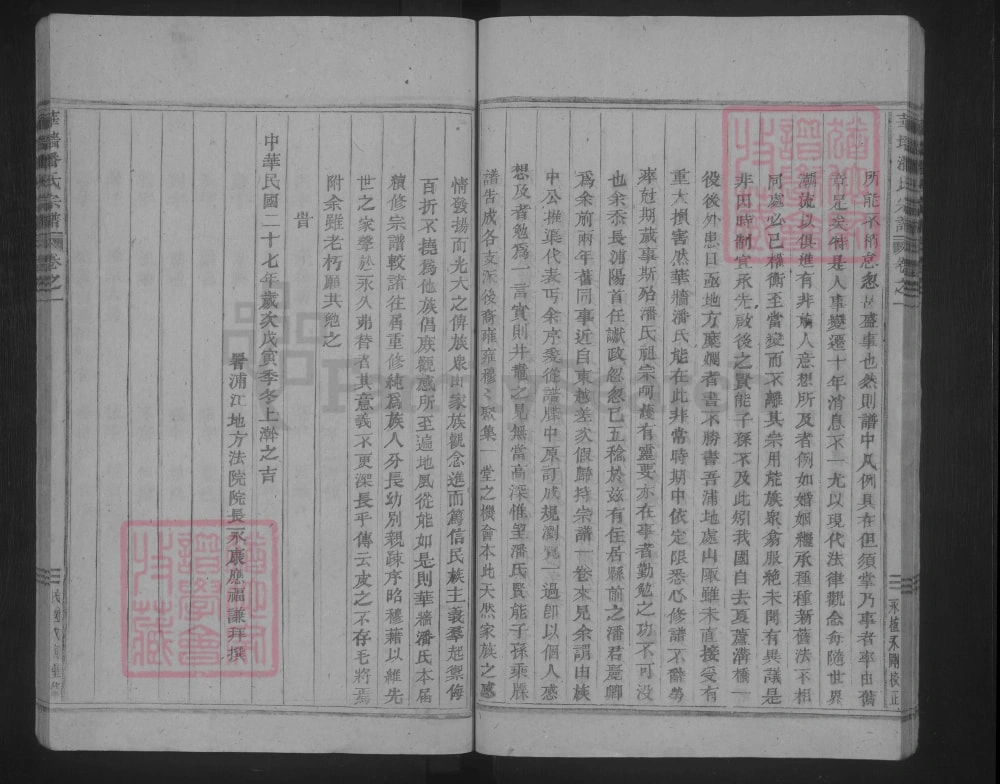 華墻潘氏宗譜 卷之一
所能不稍怠忽故盛事也然則譜中凡例具在但須掌乃事者率由舊
章足矣特是人事變遷十年消息不一尤以現代法律觀念每隨世界
潮流以俱進有非舊人意想所及者例如婚姻繼承種種新舊法不相
同處必已權衡至當變而不離其宗用能族衆翕服絶未聞有異議是
非因時制宜承先啟後之賢能子孫不及此矧我國自去夏蘆溝橋一
役後外患日亟地方糜爛者書不勝書吾浦地處山陬雖未直接受有
重大損害然華墻潘氏能在此非常時期中依定限悉心修譜不辭勞
瘁尅期蕆事斯殆潘氏祖宗呵護有靈要亦在事者勤勉之功不可没
也余忝長浦陽首任讞政忽忽已五稔於兹有住居縣前之潘君慶卿
爲余前兩年舊同事近自東越差次假歸持宗譜一卷來見余謂由族
中公推渠代表丐余序爰從譜牒中原訂成規瀏覽一過即以個人感
想及者勉爲一言實則井鼃之見無當高深惟望潘氏賢能子孫乘牒
譜告成各支派後裔雍雍穆穆聚集一堂之機會本此天然家族之感
情發揚而光大之俾族衆由家族觀念進而篤信民族主義羣起禦侮
百折不撓爲他族倡族觀感所至遍地風從能如是則華墻潘氏本届
續修宗譜較諸往屠重修純爲族人分長幼別親疎序昭穆藉以維先
世之家聲於永久弗替者其意義不更深長乎傳云皮之不存毛將焉
附余雖老朽願共勉之
旹
中華民國二十七年歲次戊寅季冬上澣之吉
署浦江地方法院院長永康應福謙拜撰
華墻潘氏宗譜 卷之一